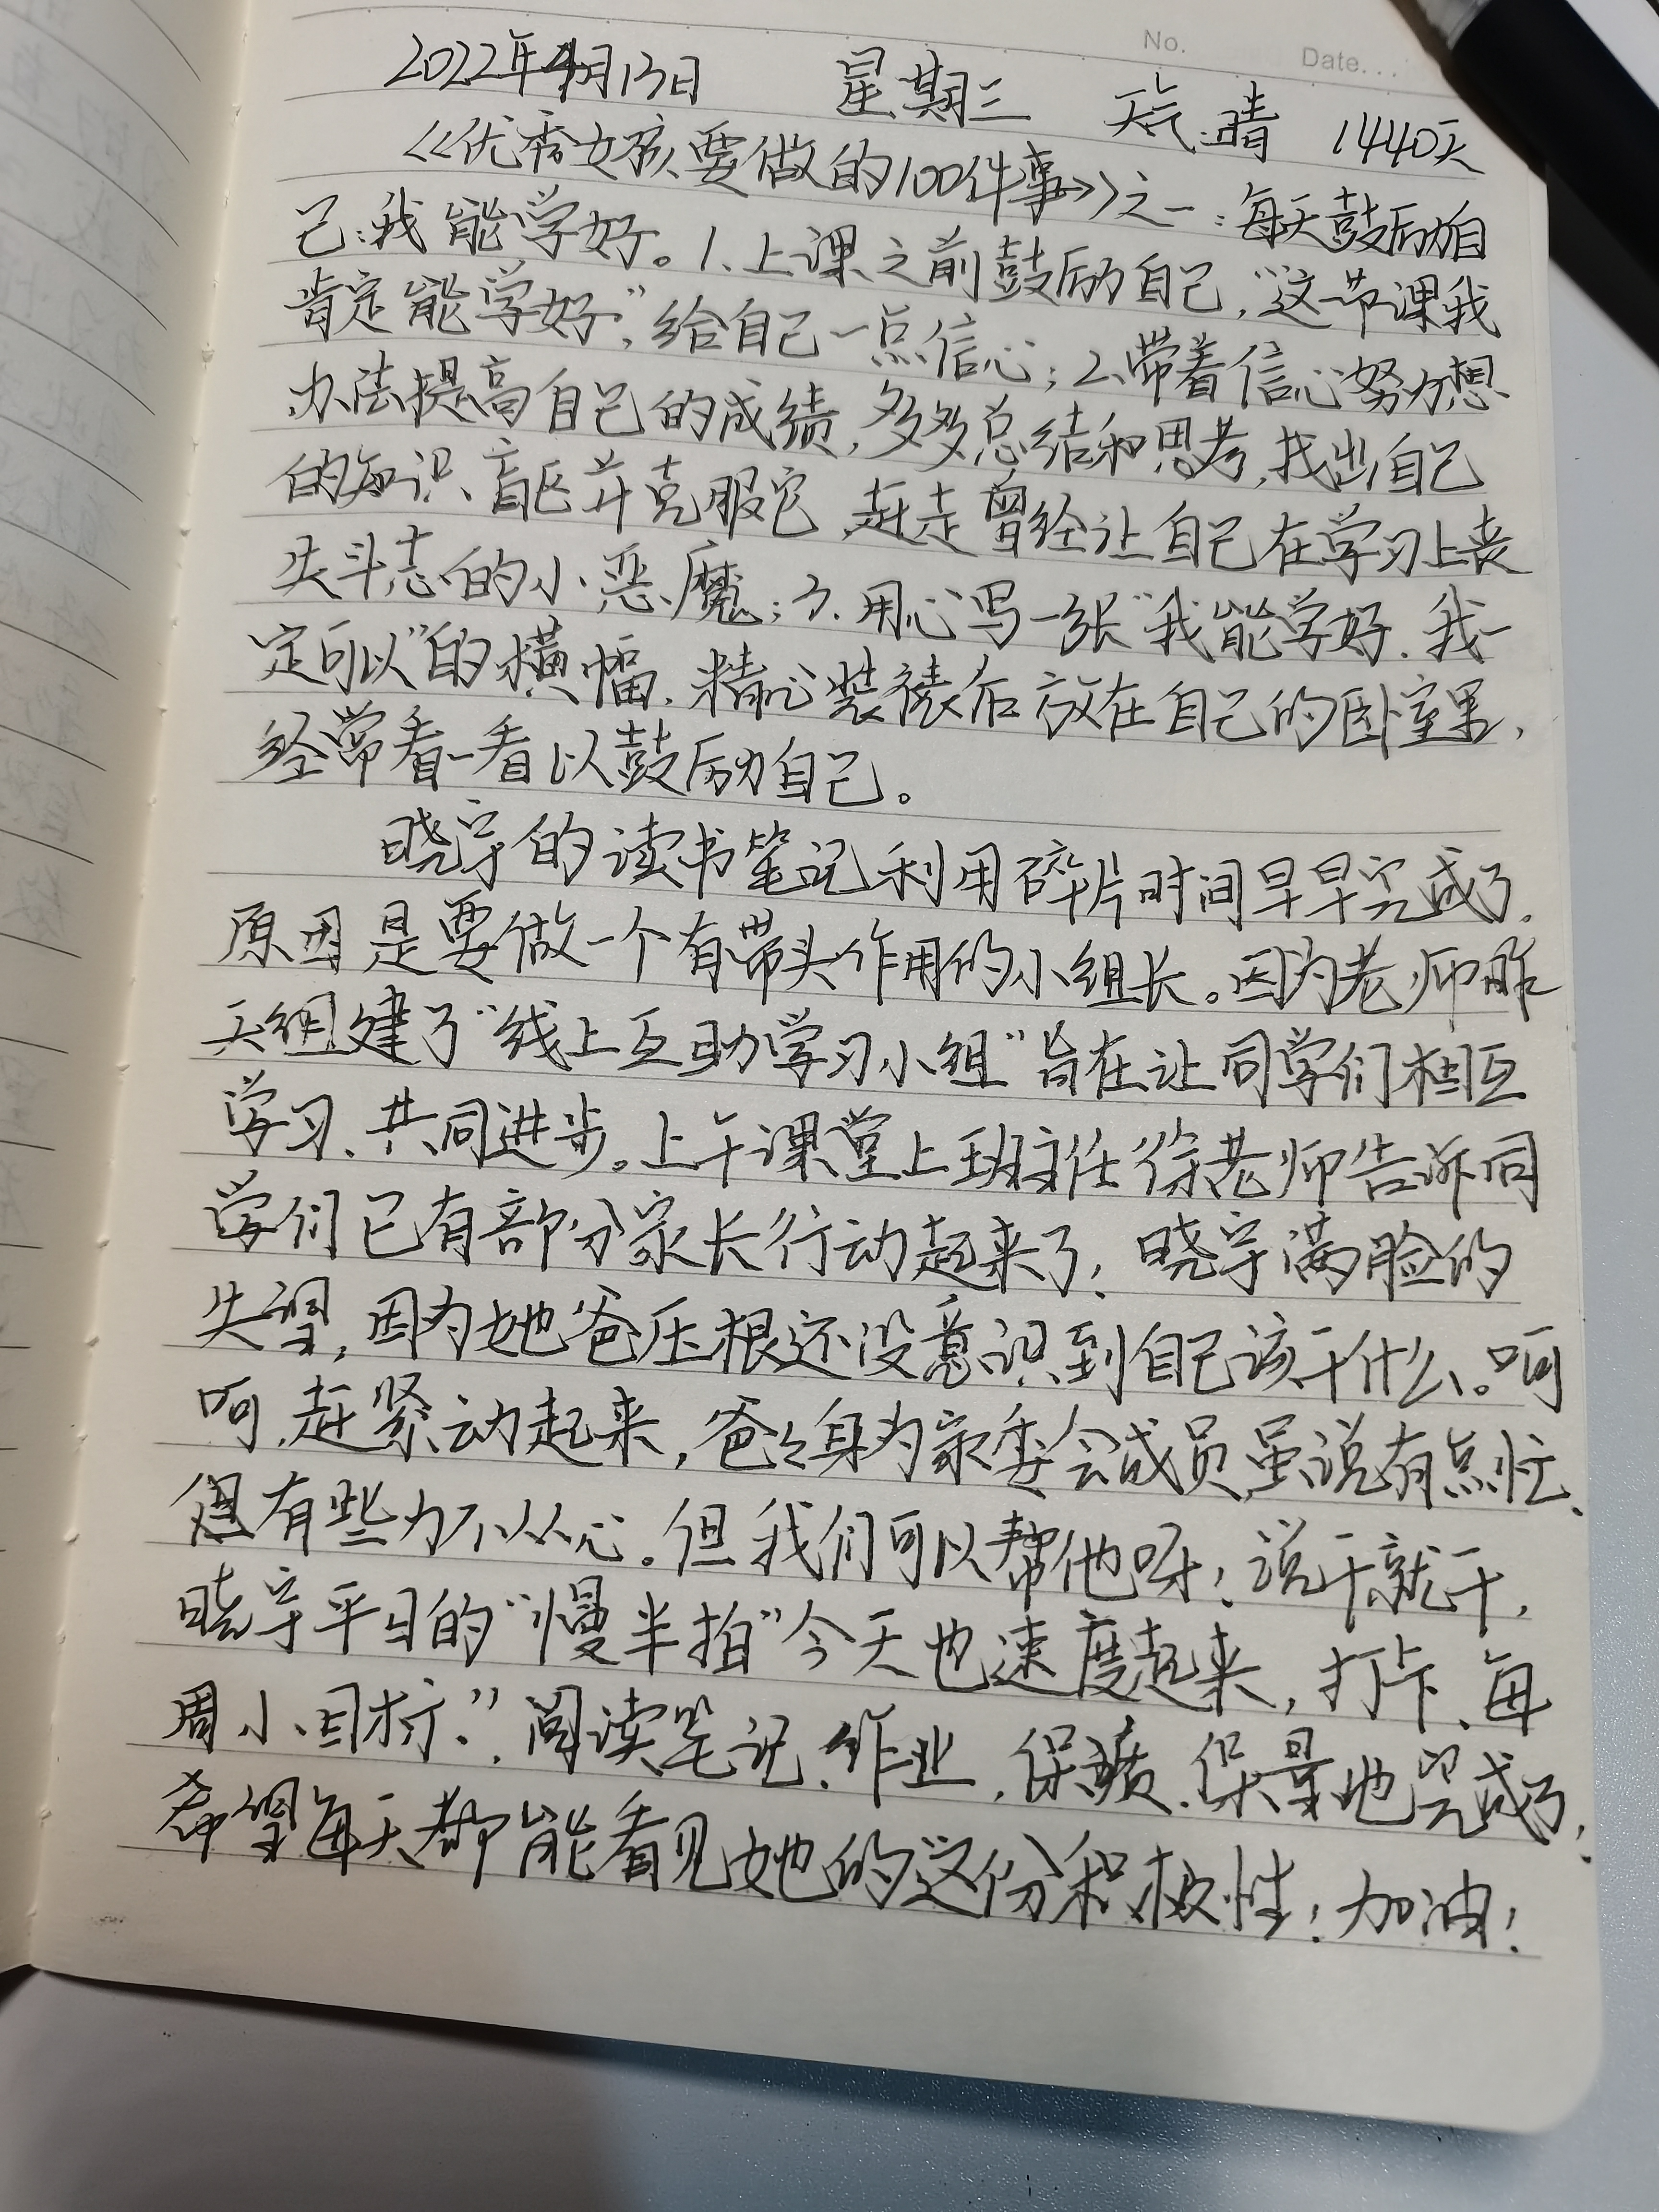 No.
Date...
2022年4月13日 星期三 天气:晴 1440天
《优秀女孩要做的100件事》之一:每天鼓励自
己:我能学好。1、上课之前鼓励自己,“这节课我
肯定能学好”,给自己一点信心;2、带着信心努力想
办法提高自己的成绩,多多总结和思考,找出自己
的知识盲区并克服它,赶走曾经让自己在学习上丧
失斗志的小恶魔;3.用心写一张“我能学好.我一
定可以”的横幅.精心装裱后放在自己的卧室里,
经常看一看以鼓励自己。
晓宇的读书笔记利用碎片时间早早完成了.
原因是要做一个有带头作用的小组长。因为老师昨
天组建了“线上互助学习小组”旨在让同学们相互
学习、共同进步。上午课堂上班主任徐老师告诉同
学们已有部分家长行动起来了,晓宇满脸的
失望,因为她爸压根还没意识到自己该干什么。呵
呵,赶紧动起来,爸爸身为家委会成员虽说有点忙、
但有些力不从心。但我们可以帮他呀!说干就干,
晓宇平日的“慢半拍”今天也速度起来,打卡、每
周小目标”.阅读笔记、作业,保质、保量地完成了,
希望每天都能看见她的这份积极性!加油!